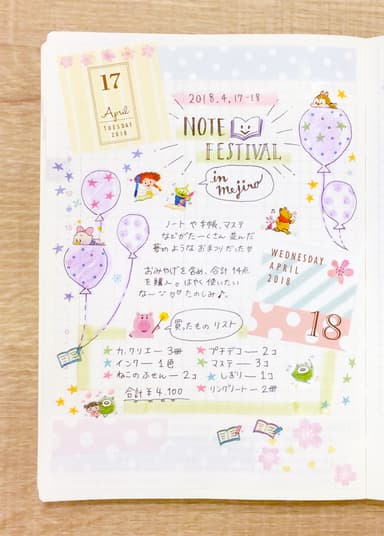 17
April
TUESDAY
2018
2018.4.17-18
NOTE
FESTIVAL
in
Mejiro
ノートや手帳、マステ
などがたーくさん並んだ
夢のようなおまつりだった!!
おみやげを含め、合計14点
を購入。はやく使いたい
たのしみ♪
WEDNESDAY
APRIL
2018
18
買ったものリスト
★カ.クリエー3冊
★プチデコー2コ
★インクー1色
★マステー3コ
★ねこのふせんー2コ
★しおりー1コ
合計¥4,100
★リングノートー2冊